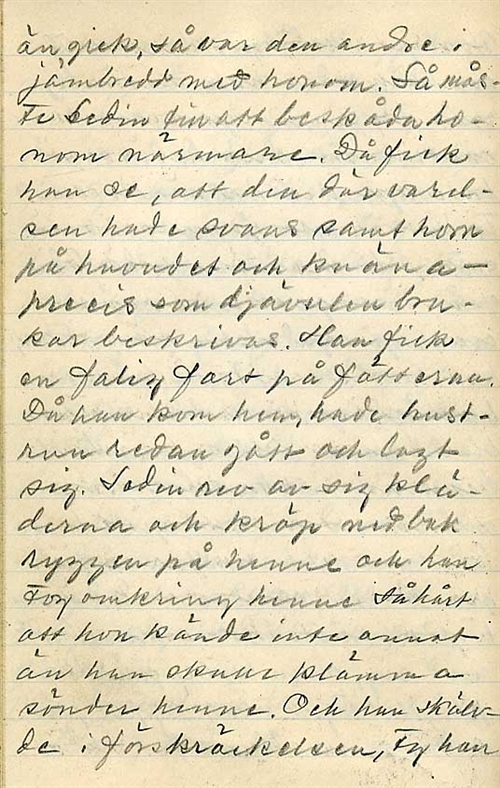 än gick, så var den andre i
jämbredd med honom. Så mås-
te Sedin fin att beskåda ho-
nom närmare. Då fick
han se, att den där varel-
sen hade svans samt horn
på huvudet och knäna –
precis som djävulen bru-
kar beskrivas. Han fick
en falig fart på fötterna.
Då han kom hem, hade hust-
run redan gått och lagt
sig. Sedin rev av sig klä-
derna och kröp ned bak
ryggen på henne och han
tog omkring henne så hårt
att hon kände inte annat
än han skulle klämma
sönder henne. Och han skälv-
de i förskräckelsen, ty han